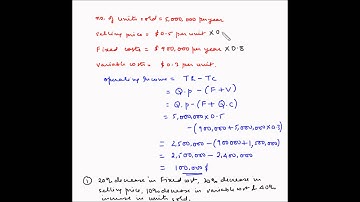 no. of units sold = 5,000,000 per year
selling price = $ 0.5 per unit × 0
Fixed costs = $ 900,000 per year × 0.8
variable costs = $ 0.2 per unit.
Operating Income = TR - TC
= Q.p - (F + V)
= Q.p - (F + Q.C)
= 5,000,000 × 0.5
- (900,000 + 5,000,000 × 0.3)
= 2500,000 - (900000 + 1,500,000)
= 2,500,000 - 2,400,000
= 100,000 $
① 20% decrease in fixed cost, 20% decrease in
selling price, 10% decrease in variable cost & 40%
increase in units sold.